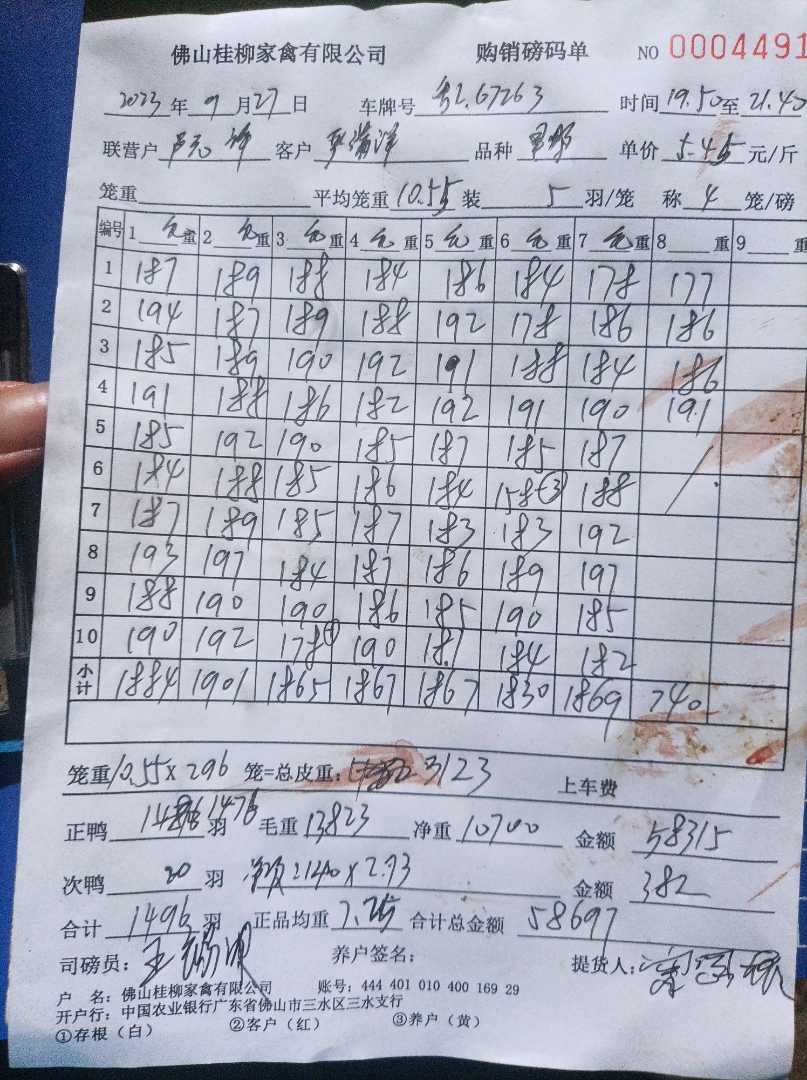 佛山桂柳家禽有限公司 购销磅码单 NO 0004491
2023年9月27日 车牌号 粤Z.67263 时间19.50至21.40
联营户 客户 品种 单价 5.45 元/斤
笼重 平均笼重10.55装 5 羽/笼 称 4 笼/磅
编号 1 毛重 2 毛重 3 毛重 4 毛重 5 毛重 6 毛重 7 毛重 8 重 9 重
1 187 189 188 184 186 184 178 177
2 194 187 189 188 192 178 186 186
3 185 189 190 192 191 188 184 186
4 191 188 186 182 192 191 190 191
5 185 192 190 185 187 185 187
6 184 188 185 186 184 158③ 188
7 187 189 185 187 183 183 192
8 193 197 184 187 186 189 197
9 188 190 190 186 185 190 185
10 190 192 178 190 181 184 182
小计 1884 1901 1865 1867 1867 1830 1869 740
笼重10.55×296 笼=总皮重: 3123 上车费
正鸭 1476 羽 毛重 13823 净重 10700 金额 58315
次鸭 20 羽 140×2.73 金额 382
合计 1496 羽 正品均重 7.25 合计总金额 58697
司磅员: 王 养户签名: 提货人:
户 名: 佛山桂柳家禽有限公司 账号: 444 401 010 400 169 29
开户行: 中国农业银行广东省佛山市三水区三水支行
①存根（白） ②客户（红） ③养户（黄）